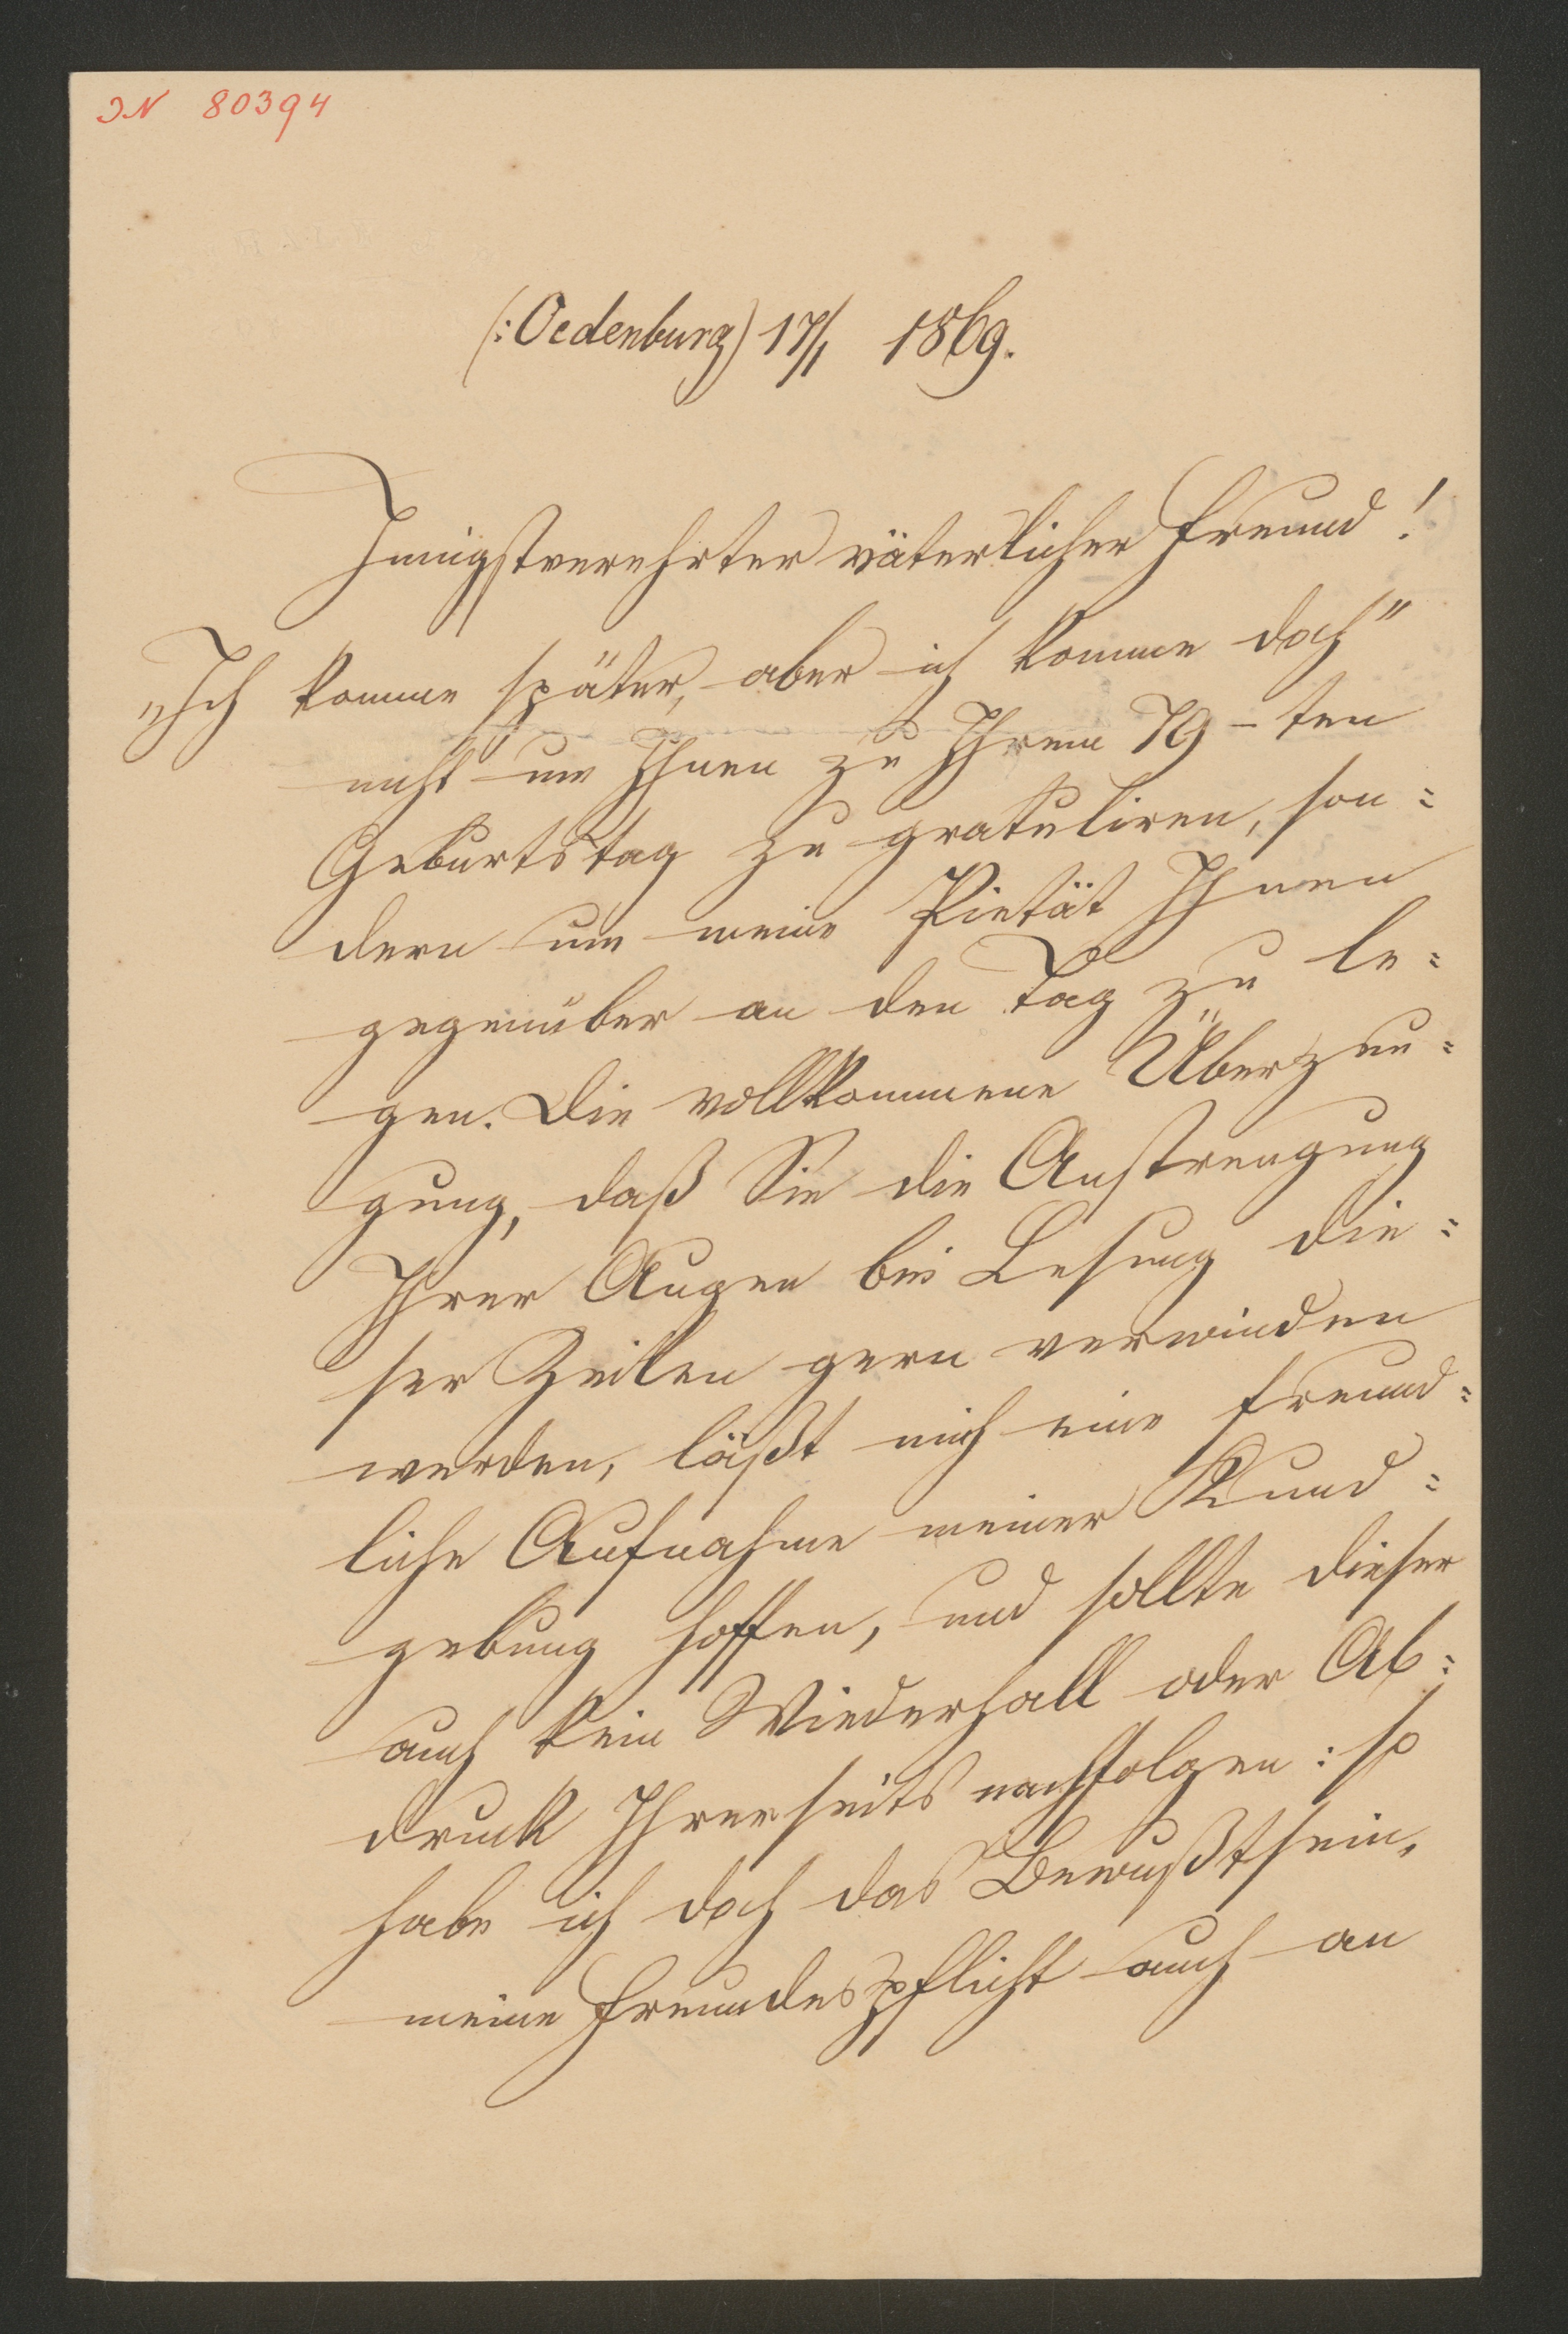 IN 80394
(: Oedenburg) 17/1 1869.
Innigstverehrter väterlicher Freund!
„Ich komme später, aber ich komme doch"
nicht um Ihnen zu Ihrem 79-ten
Geburtstag zu gratuliren, son=
dern um meine Pietät Ihnen
gegenüber an den Tag zu le=
gen. Die vollkommene Überzeu=
gung, daß Sie die Anstrengung
Ihrer Augen bei Lesung die=
ser Zeilen gern verwinden
werden, läßt mich eine freund=
liche Aufnahme meiner Kund=
gebung hoffen, und sollte dieser
auch kein Wiederhall oder Ab=
druck Ihrerseits nachfolgen: so
habe ich doch das Bewußtsein,
meine Freundespflicht auch an